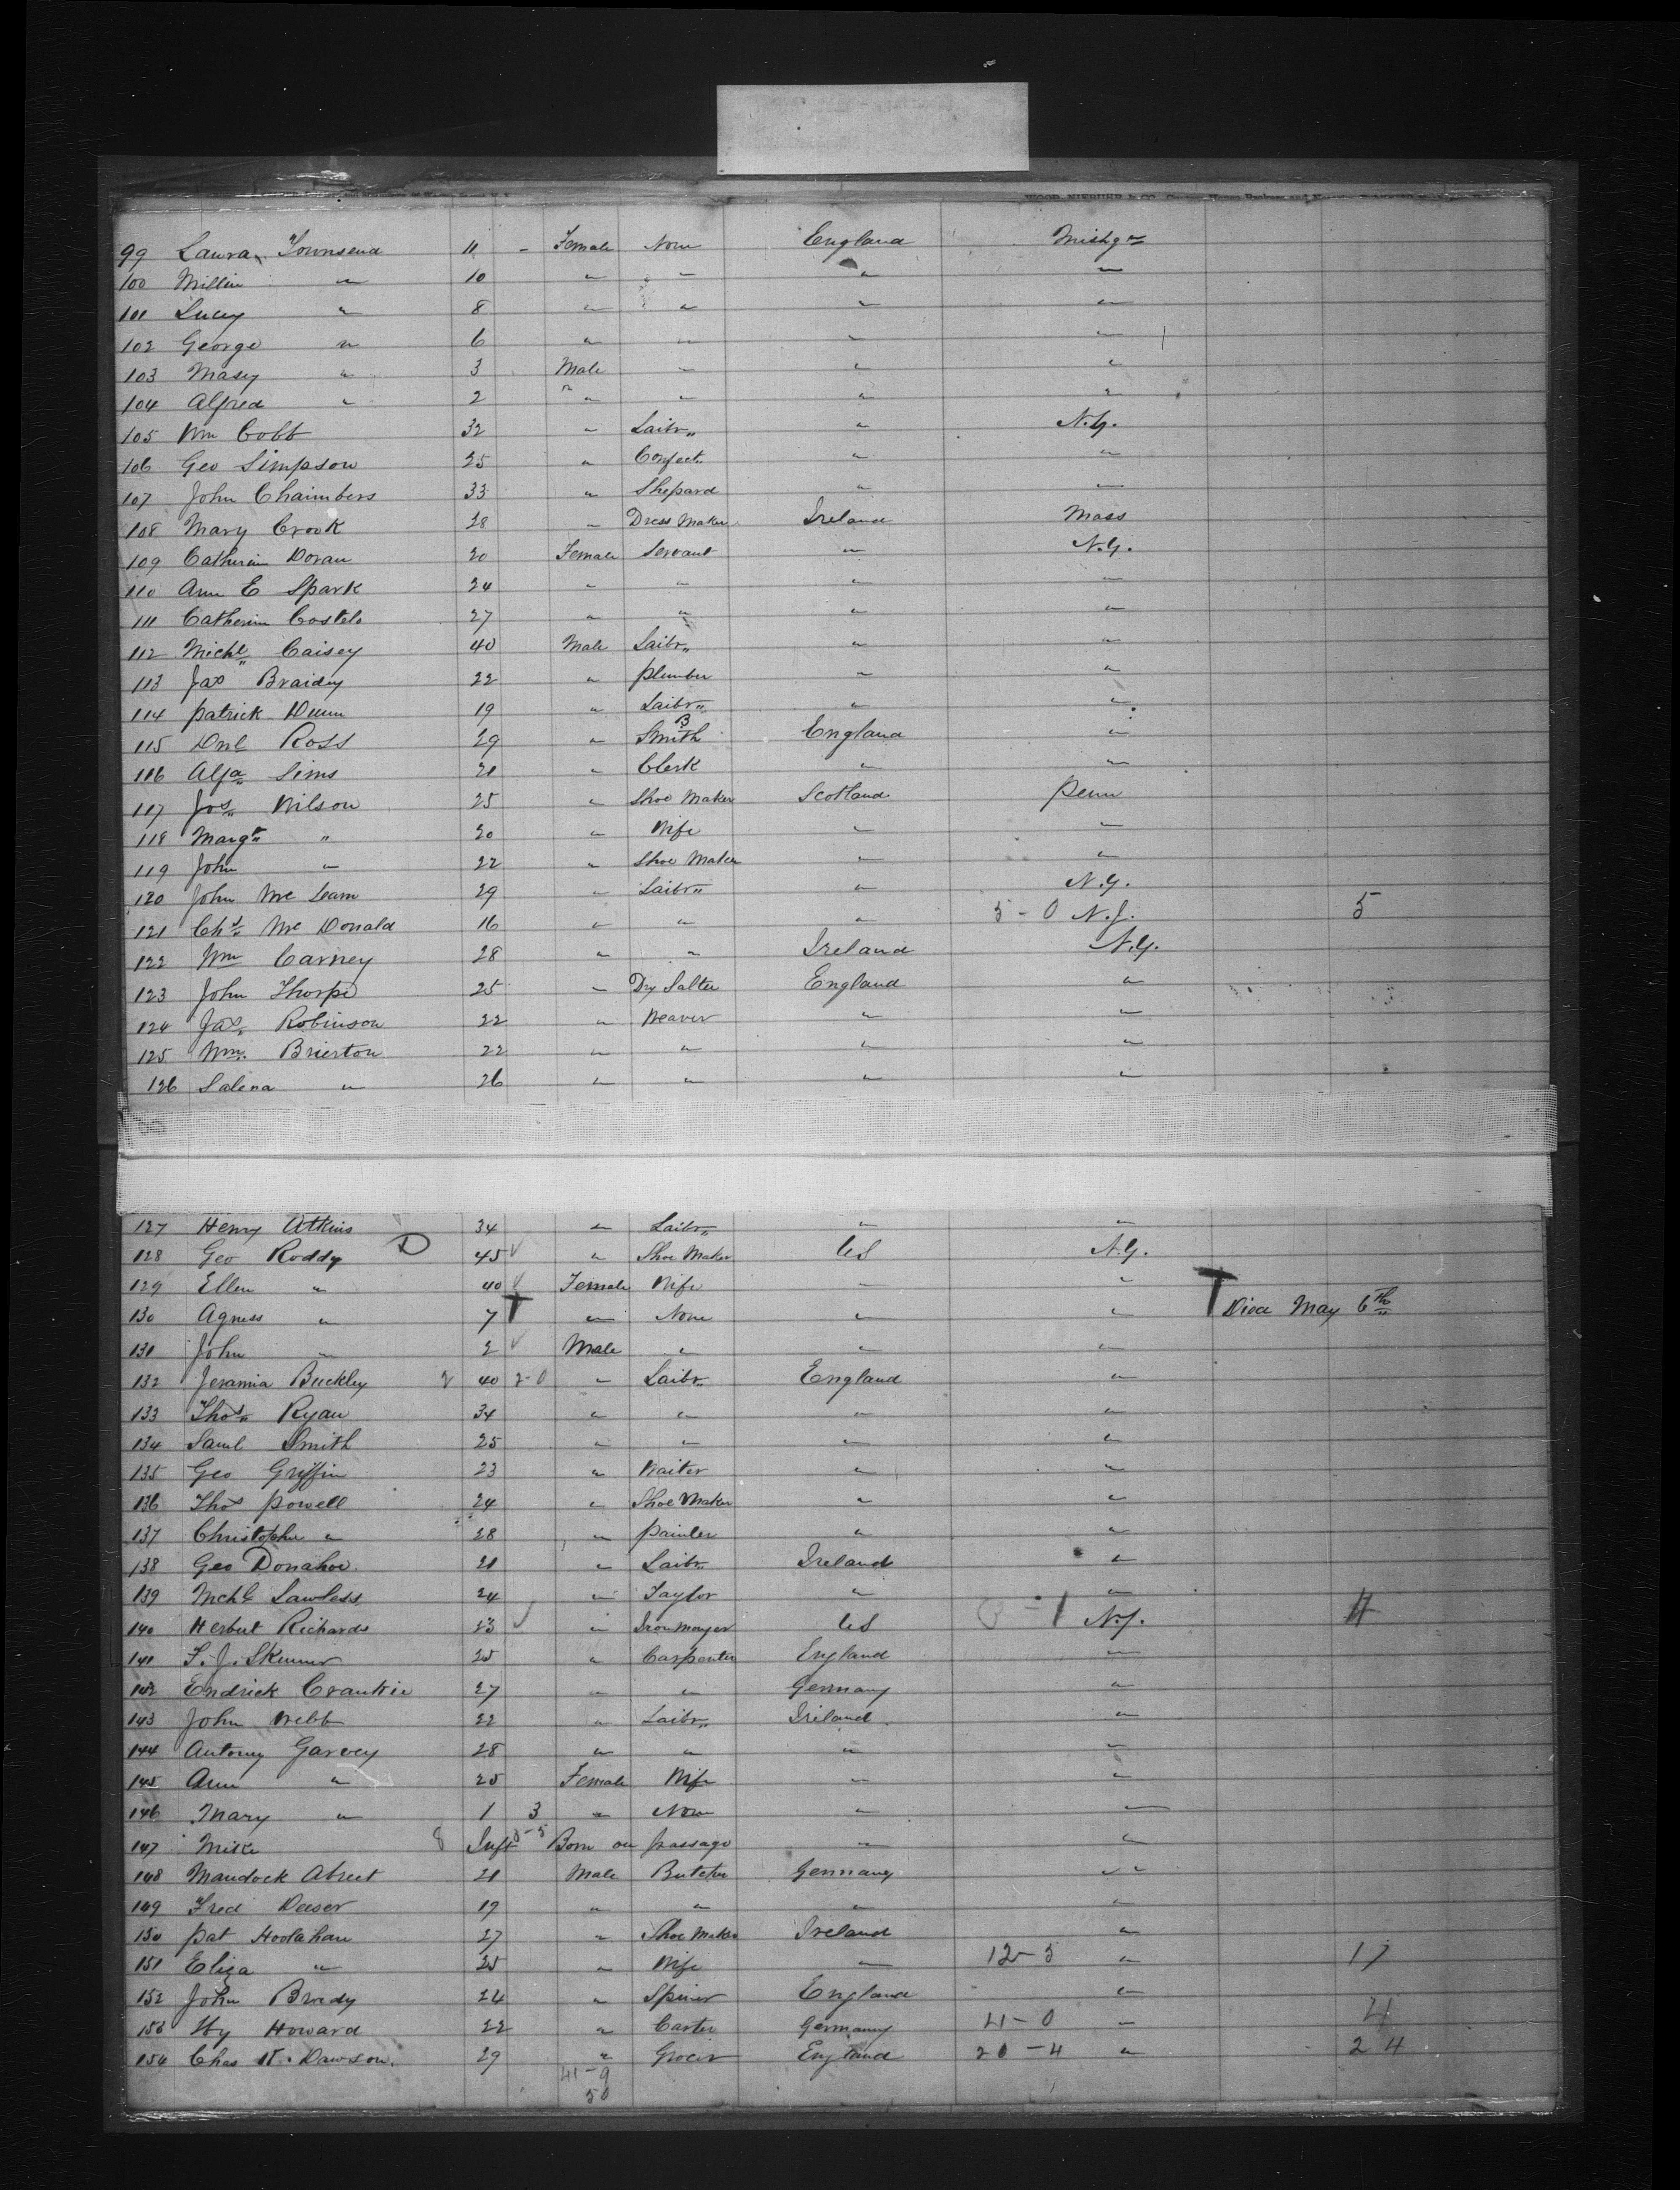 99 Laura Townsend 11 - Female None England Mishgn
100 Millin " 10 " " " "
101 Lucy " 8 " " " "
102 George " 6 " " " "
103 Masey " 3 Male " " "
104 Alfred " 2 " " " "
105 Wm Cobb 32 " Laibr " N.Y.
106 Geo Simpson 25 " Confect. " "
107 John Chaimbers 33 " Shepard " "
108 Mary Crook 28 " Dress Maker Ireland Mass
109 Catherin Doran 20 Female Servant " N.Y.
110 Ann E Spark 24 " " " "
111 Catherin Costelo 27 " " " "
112 Michl Caisey 40 Male Laibr " "
113 Jas Braidy 22 " plumber " "
114 patrick Dunn 19 " Laibr " "
115 Dnl Ross 29 " B Smith England "
116 Alfa Sims 21 " Clerk " "
117 Jos Wilson 25 " Shoe Maker Scotland penn
118 Margt " 20 " Wife " "
119 John " 22 " Shoe Maker " "
120 John Mc Leam 29 " Laibr " N.Y.
121 Chs Mc Donald 16 " " " 5-0 N.J. 5
122 Wm Carney 28 " " Ireland N.Y.
123 John Thorpe 25 " Dry Salter England "
124 Jas Robinson 22 " Weaver " "
125 Wm. Brierton 22 " " " "
126 Salena " 26 " " " "
127 Henry Atkins 34 " Laibr " "
128 Geo Roddy D 45 " Shoe Maker US N.Y.
129 Ellen " 40 Female Wife " "
130 Agness " 7 T " None " " T Died May 6th
131 John " 2 Male " " "
132 Jeramia Buckley 2 40 2-0 " Laibr England "
133 Thos Ryan 34 " " " "
134 Saml Smith 25 " " " "
135 Geo Griffin 23 " Waiter " "
136 Thos powell 24 " Shoe Maker " "
137 Christopher " 28 " painter " "
138 Geo Donahoe 21 " Laibr Ireland "
139 Michl Lawless 24 " Taylor " "
140 Herbert Richards 23 " Iron monger US 1 N.Y.
141 F. J. Skinner 25 " Carpenter England "
142 Endrick Crankie 27 " " Germany "
143 John Webb 22 " Laibr Ireland "
144 Antony Garvey 28 " " " "
145 Ann " 25 Female Wife " "
146 Mary " 1 3 " None " "
147 Mike 8 Inft 3-5 Born on passage " "
148 Mandock Abreet 21 Male Butcher Germany "
149 Fred Deeser 19 " " " "
150 pat Hoolahan 27 " Shoe Maker Ireland "
151 Eliza " 25 " Wife " 12-5 " 17
152 John Brady 24 " Spiner England "
153 Hy Howard 22 " Carter Germany 4-0 " 4
154 Chas W. Dawson. 29 " Grocer England 20-4 " 24
41-9
50